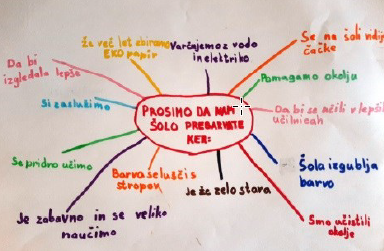 Že več let zbiramo
EKO papir
Varčujemo z vodo
in elektriko
Se na šoli vidijo
čačke
Da bi
izgledala lepše
Pomagamo okolju
Si zaslužimo
PROSIMO DA NAM
ŠOLO PREBARVATE
KER:
Da bi se učili v lepših
učilnicah
Se pridno učimo
Barva se lušči s
stropov
Je že zelo stara
Šola izgublja
barvo
Je zabavno in se veliko
naučimo
Smo učistili
okolje